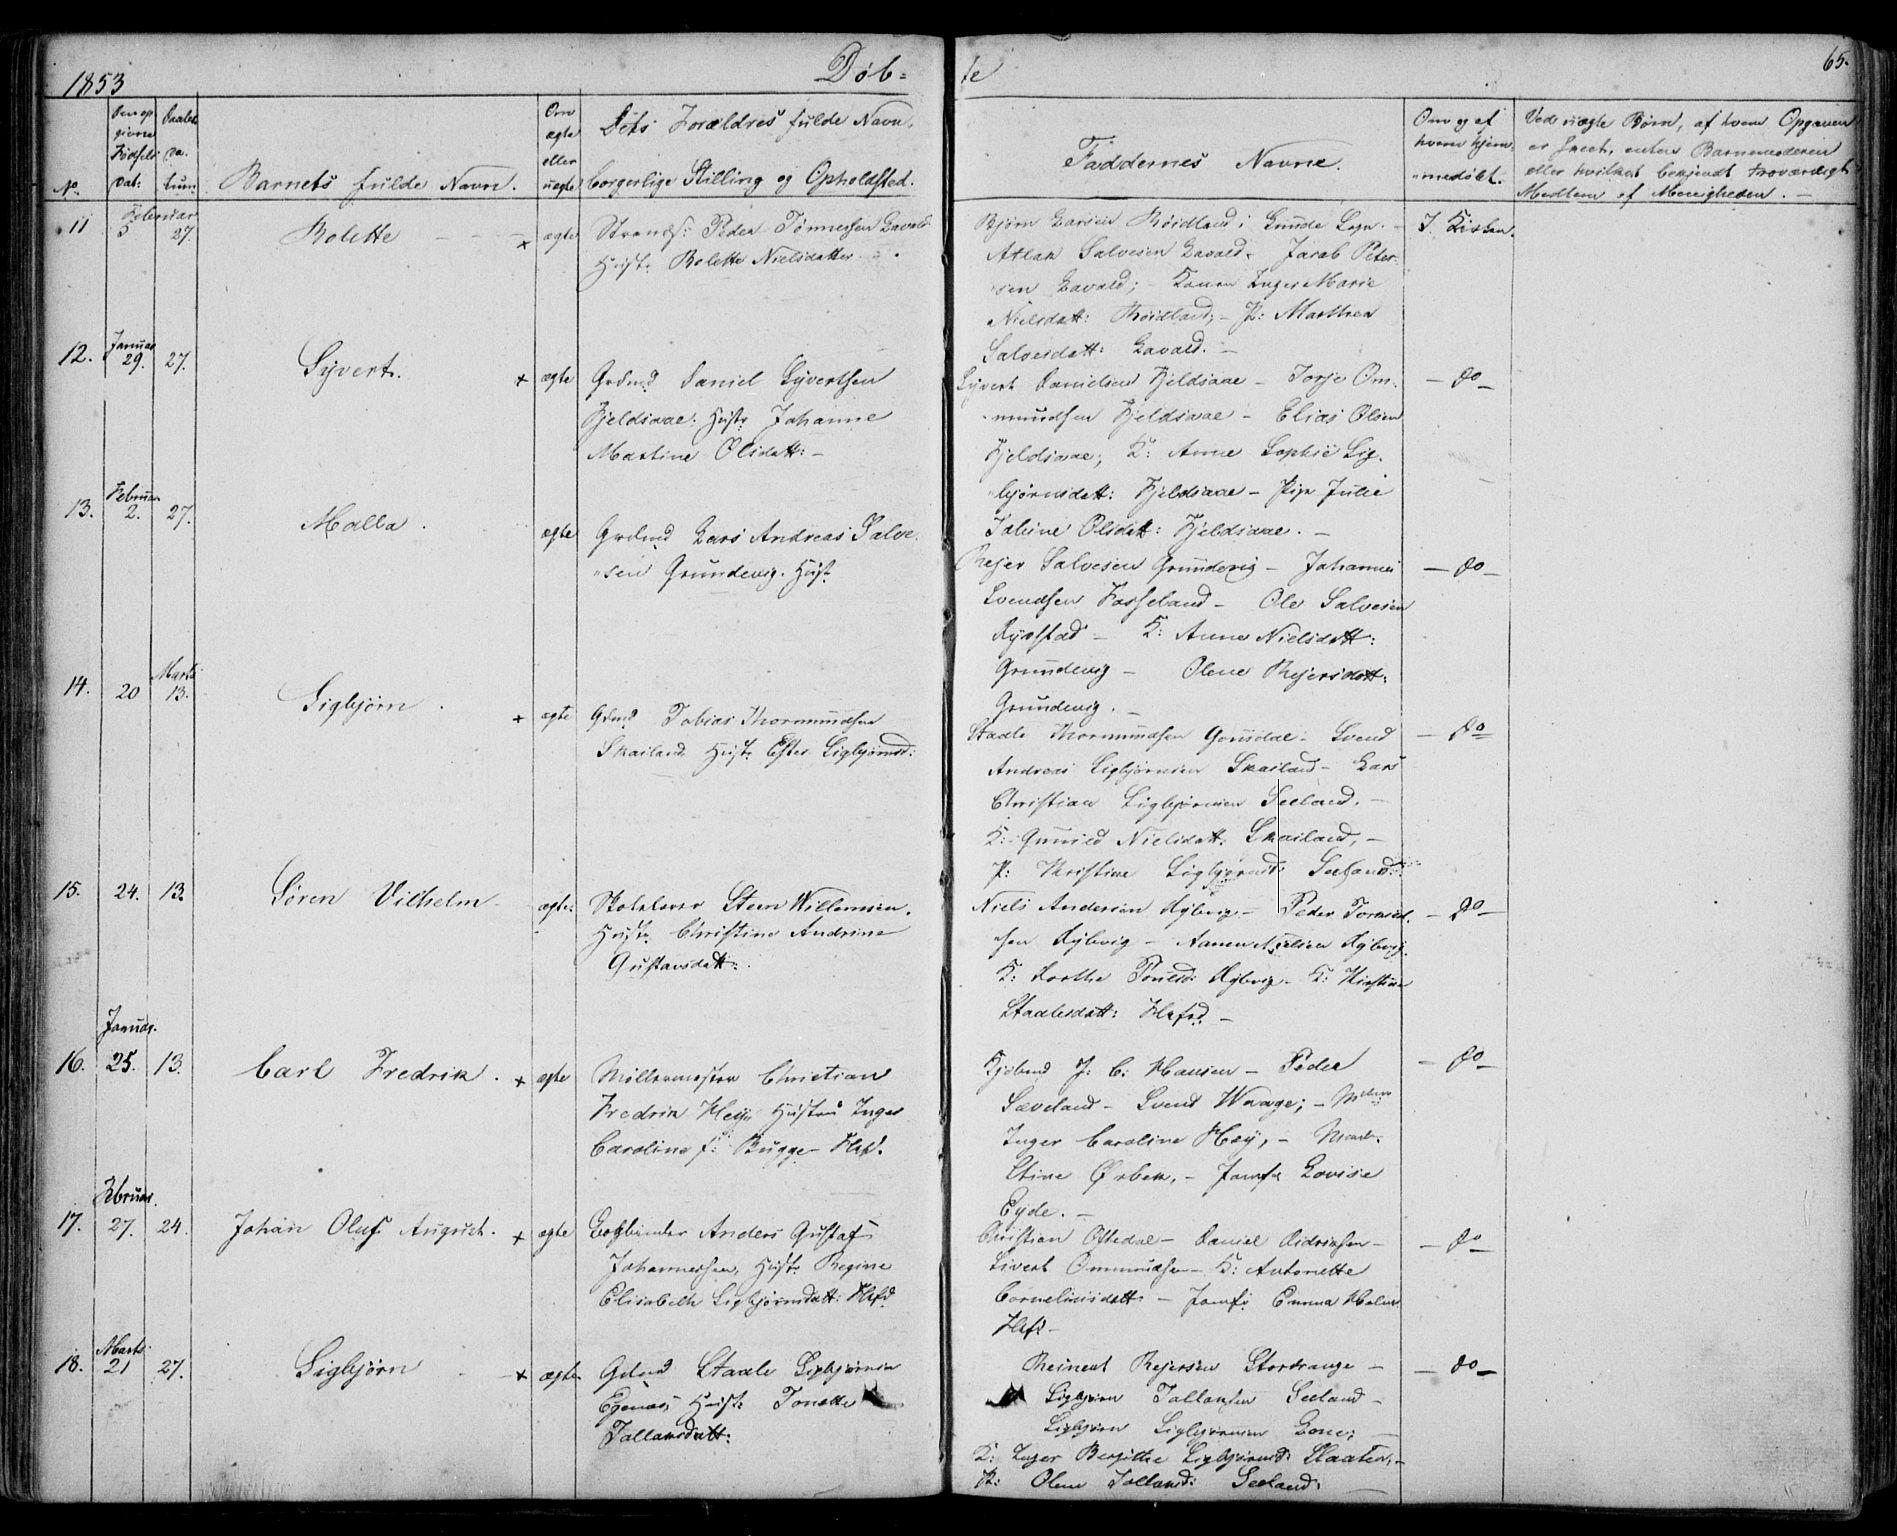 1853
Døb-
te
65.
No.
Den op-
givne
Fødsels
Dat:
Daabs
Da-
tum.
Barnets fulde Navn.
Om
ægte
eller
uægte
Dets Forældres fulde Navn,
borgerlige Stilling og Opholdsted.
Faddernes Navne.
Om og af
hvem hjem-
medøbt.
Ved uægte Børn, af hvem Opgaven
er skeet, enten Barnemoderen
eller hvilket bekjendt troværdigt
Medlem af Menigheden. -
11
Februar
5
27.
Rolette
+
ægte
Strands: Peder Tønnessen Lavold
Hust: Rolette Nielsdatter
Bjørn Larsen Røidland i Lunde Sogn. -
Atlak Salvesen Lavold. Jacob Peter-
sen Lavold; - Konen Inger Marie
Nielsdatt: Røidland; - P: Marthea
Salvesdatt: Lavold. -
I Kirken.
12.
Januar
29.
27.
Syvert.
+
ægte
Grdmd Daniel Syvertsen
Fjeldsaae. Hust: Johanne
Martine Olsdatt: -
Syvert Danielsen Fjeldsaae - Torje Om-
mundsen Fjeldsaae - Elias Olsen
Fjeldsaae; K: Anne Sophie Sig-
bjørnsdatt: Fjeldsaae - Pige Julie
Tobine Olsdatt: Fjeldsaae. -
- do -
13.
Februar
2.
27.
Malla.
ægte
Grdmd Lars Andreas Salve-
sen Grundevig. Hust:
Rejer Salvesen Grundevig - Johannes
Svendsen Fosseland - Ole Salvesen
Rygstad - K: Anne Nielsdatt:
Grundevig - Olene Rejersdatt:
Grundevig. -
- do -
14.
20
Marts
13.
Sigbjørn.
+
ægte
Grdmd Tobias Thormundsen
Skailand Hust: Ester Sigbjørnsd:
Staale Thormundsen Gousdal - Svend
Andreas Sigbjørnsen Skailand - Lars
Christian Sigbjørnsen Seeland. -
K: Gunild Nielsdatt: Skailand, -
P: Kristine Sigbjørnsd: Seeland:
- do -
15.
24.
13.
Søren Vilhelm
ægte:
Skolelærer Steen Willumsen.
Hust: Christine Andrine
Gustavsdatt:
Niels Andersen Rygbvig - Peder Tormod-
sen Rygbvig - Aanen Nielsen Rygbvig.
K: Dorthe Poulsd: Rygbvig - K: Kirstine
Staalesdatt: Flkfd. -
- do -
16.
Januar.
25.
13.
Carl Fredrik.
+
ægte
Møllermester Christian
Fredrik Høy Hustru Inger
Caroline f: Bugge Flkf.
Kjøbmd J: C: Hansen - Peder
Sæveland - Svend Waage; -
Inger Caroline Høy, - Mad:
Stine Ørbek, - Jomfr Lovise
Eyde. -
- do -
17.
Februar.
27.
24.
Johan Oluf August.
+
ægte
Bogbinder Anders Gustaf
Johannessen, Hust: Regine
Elisabeth Sigbjørnsdatt: Flkfd
Christian Oftedal - Daniel Didriksen -
Sivert Ommundsen - K: Antonette
Corneliusdatt: - Jomfr Emma Holm
Flkf: -
- do -
18.
Marts
21
27.
Sigbjørn
+
ægte
Grdmd Staale Sigbjørnsen
Egenæs; Hust: Tonette
Tallaksdatt:
Reinert Rejersen Stordrange -
Sigbjørn Tallaksen Seeland -
Sigbjørn Sigbjørnsen Lone; -
K: Inger Bergitte Sigbjørnsd: Slaatten, -
P: Olene Tollaksd: Seeland. -
- do -